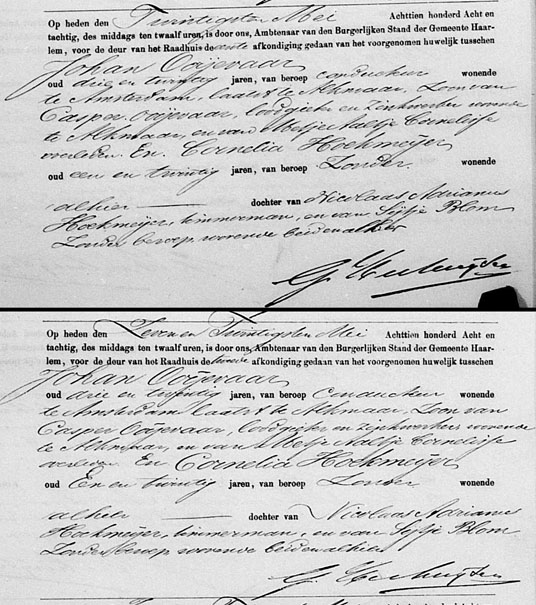 Op heden den Twintigsten Mei Achttien honderd Acht en
tachtig, des middags ten twaalf uren, is door ons, Ambtenaar van den Burgerlijken Stand der Gemeente Haar-
lem, voor de deur van het Raadhuis de eerste afkondiging gedaan van het voorgenomen huwelijk tusschen
Johan Ooijevaar
oud drie en twintig jaren, van beroep conducteur wonende
te Amsterdam, laatst te Alkmaar, Zoon van
Casper Ooijevaar, loodgieter en Zinkwerker wonende
te Alkmaar, en van Metje Aaltje Cornelisse
overleden. En Cornelia Hoekmeijer
oud een en twintig jaren, van beroep Zonder wonende
alhier dochter van Nicolaas Adrianus
Hoekmeijer, timmerman, en van Sijtje Blom
Zonder beroep, wonende beiden alhier
Op heden den Zeven en Twintigsten Mei Achttien honderd Acht en
tachtig, des middags ten twaalf uren, is door ons, Ambtenaar van den Burgerlijken Stand der Gemeente Haar-
lem, voor de deur van het Raadhuis de tweede afkondiging gedaan van het voorgenomen huwelijk tusschen
Johan Ooijevaar
oud drie en twintig jaren, van beroep conducteur wonende
te Amsterdam, laatst te Alkmaar, Zoon van
Casper Ooijevaar, loodgieter en Zinkwerker wonende
te Alkmaar, en van Metje Aaltje Cornelisse
overleden. En Cornelia Hoekmeijer
oud Een en twintig jaren, van beroep Zonder wonende
alhier dochter van Nicolaas Adrianus
Hoekmeijer, timmerman, en van Sijtje Blom
Zonder beroep wonende beiden alhier